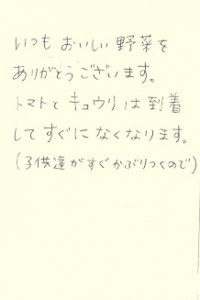 いつも おいしい 野菜を
ありがとうございます。
トマトと キュウリ は 到着
して すぐに なくなります。
(子供達が すぐ かぶりつくので)